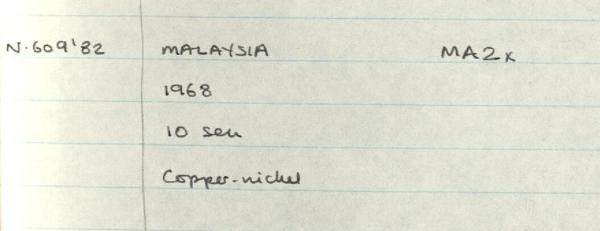 N.609'82 MALAYSIA MA2x
1968
10 sen
Copper-nickel